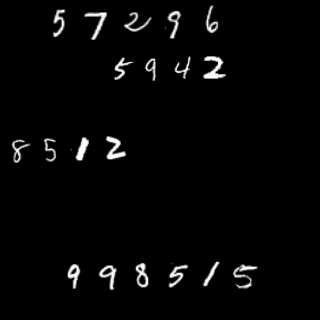 57296
5942
8512
998515